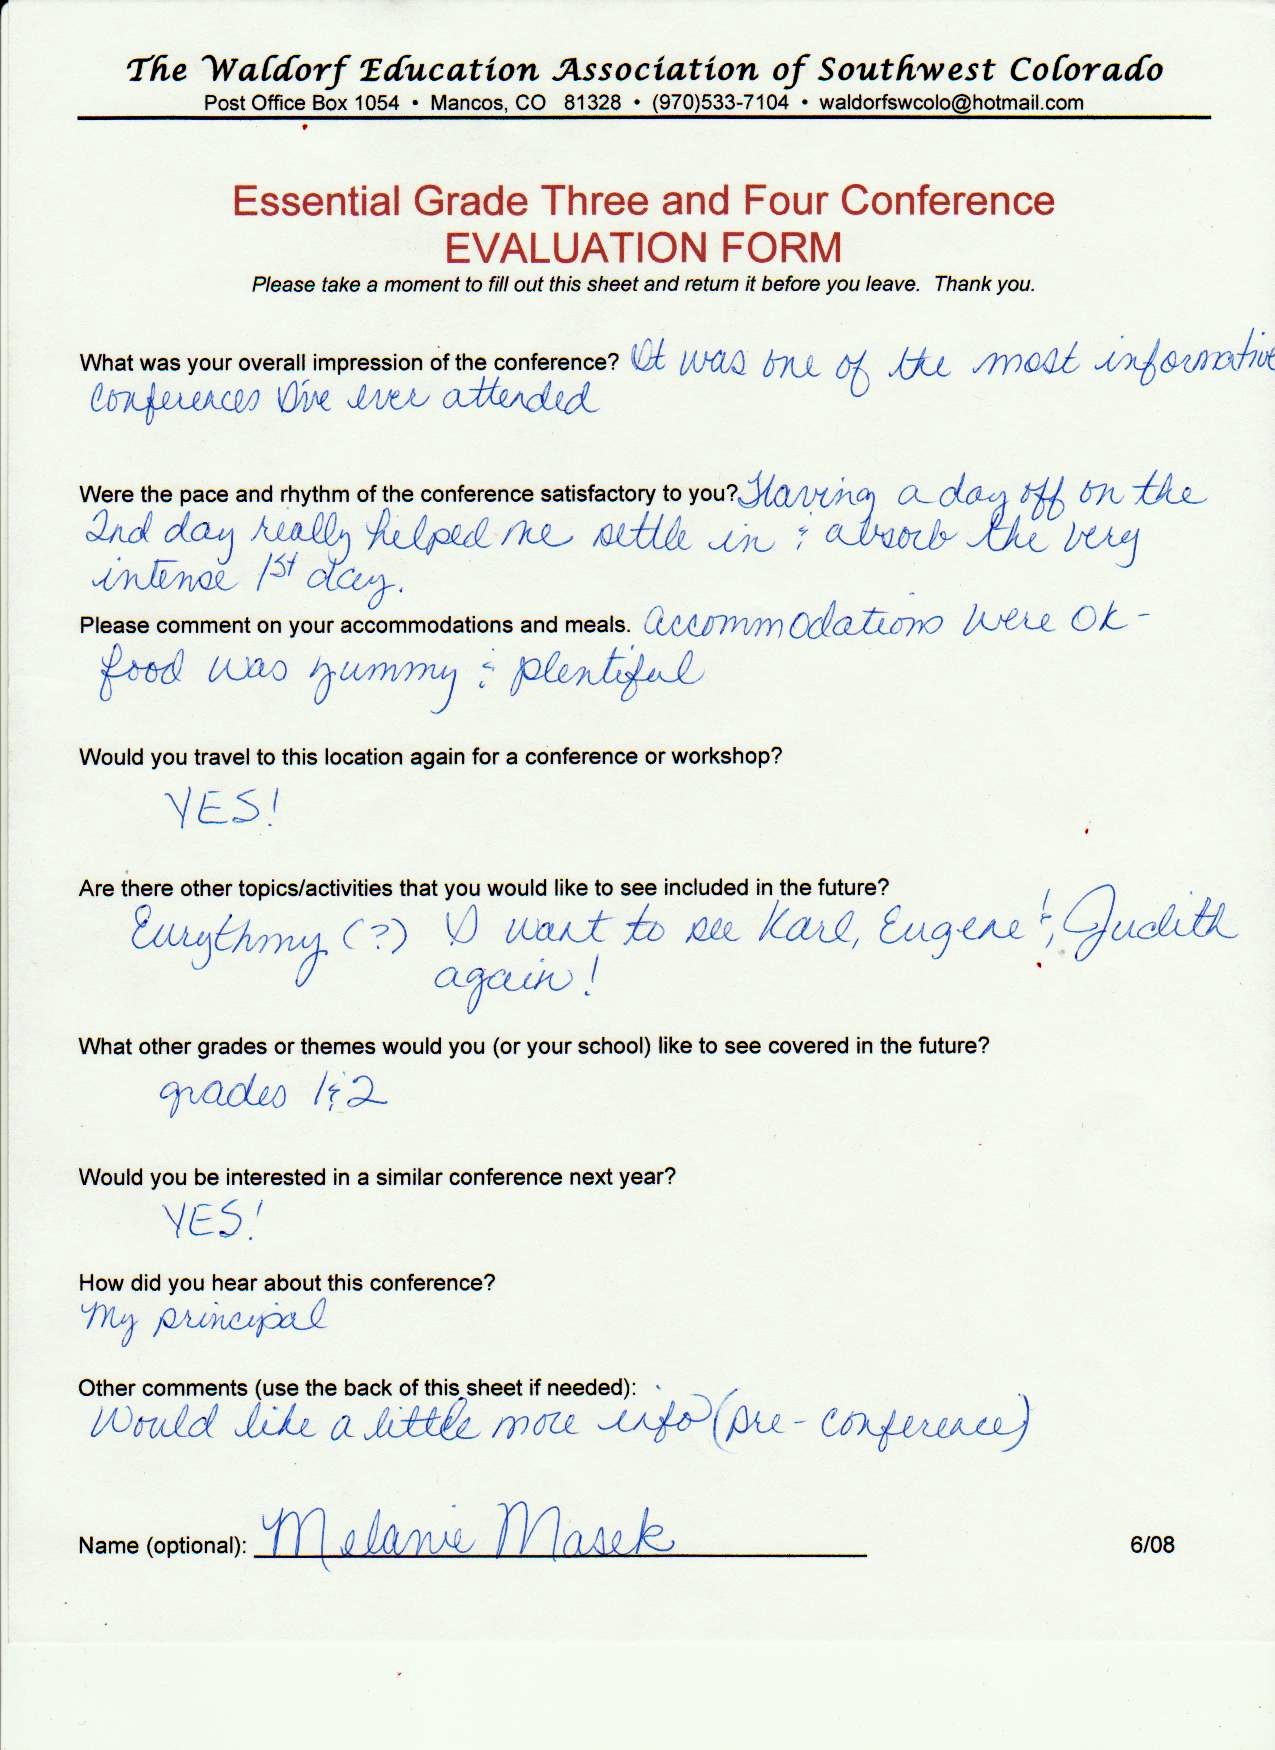 The Waldorf Education Association of Southwest Colorado
Post Office Box 1054 • Mancos, CO 81328 • (970)533-7104 • waldorfswcolo@hotmail.com
Essential Grade Three and Four Conference
EVALUATION FORM
Please take a moment to fill out this sheet and return it before you leave. Thank you.
What was your overall impression of the conference? It was one of the most informative
conferences I've ever attended
Were the pace and rhythm of the conference satisfactory to you? Having a day off on the
2nd day really helped me settle in & absorb the very
intense 1st day.
Please comment on your accommodations and meals. Accommodations were OK -
food was yummy & plentiful
Would you travel to this location again for a conference or workshop?
YES!
Are there other topics/activities that you would like to see included in the future?
Eurythmy (?) I want to see Karl, Eugene & Judith
again!
What other grades or themes would you (or your school) like to see covered in the future?
grades 1 & 2
Would you be interested in a similar conference next year?
YES!
How did you hear about this conference?
My principal
Other comments (use the back of this sheet if needed):
Would like a little more info (pre-conference)
Name (optional): Melanie Masek 6/08